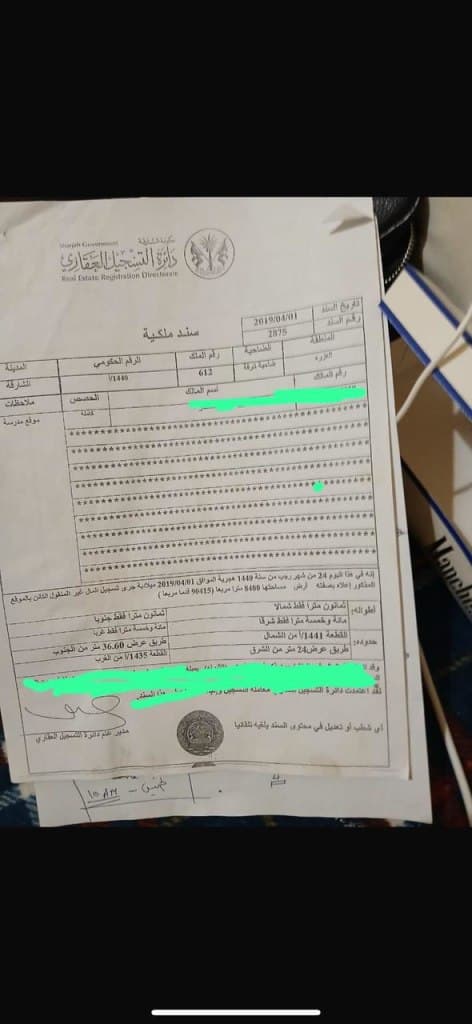 حكومة الشارقة
Sharjah Government
دائرة التسجيل العقاري
Real Estate Registration Directorate
تاريخ السند 2019/04/01
رقم السند 2875
سند ملكية
المنطقة الضاحية رقم الملك الرقم الحكومي المدينة
ضاحية 612 1440/أ الشارقة
رقم المالك اسم المالك الحصص ملاحظات
كاملة موقع مدرسة
إنه في هذا اليوم 24 من شهر رجب من سنة 1440 هجرية الموافق 2019/04/01 ميلادية جرى تسجيل المال غير المنقول الكائن بالموقع
المذكور أعلاه بصفته أرض مساحتها 8400 مترا مربعا (90415 قدما مربعا)
أطواله: ثمانون مترا فقط شمالا ثمانون مترا فقط جنوبا
مائة وخمسة مترا فقط شرقا مائة وخمسة مترا فقط غربا
حدوده: القطعة 1441/أ من الشمال طريق عرض 36.60 متر من الجنوب
طريق عرض 24 متر من الشرق القطعة 1435/أ من الغرب
لقد اعتمدت دائرة التسجيل معاملة التسجيل هذا السند.
أي شطب أو تعديل في محتوى السند يلغيه تلقائيا
مدير عام دائرة التسجيل العقاري
10 AM